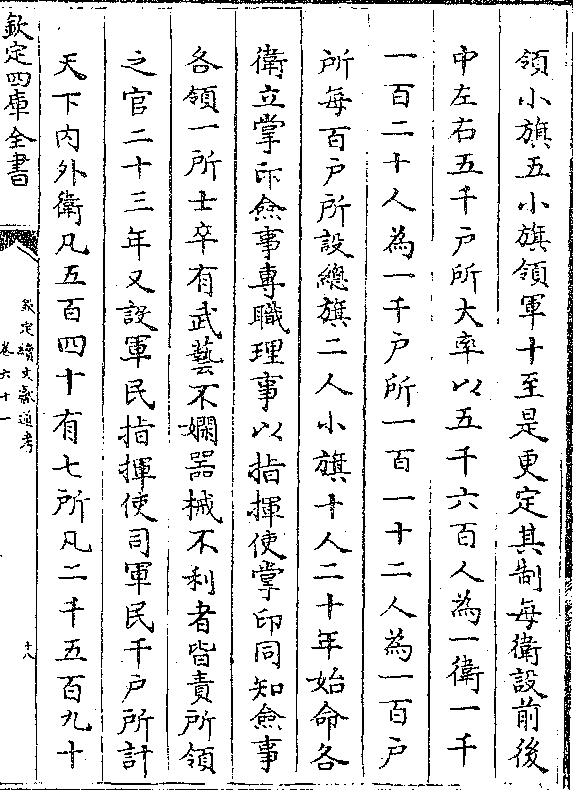 領小旗五小旗領軍十至是更定其制每衛設前後
中左右五千戸所大率以五千六百人為一衛一千
一百二十人為一千戸所一百一十二人為一百戸
所每百戸所設總旗二人小旗十人二十年始命各
衛立掌印僉事專職理事以指揮使掌印同知僉事
各領一所士卒有武藝不嫻器械不利者皆責所領
之官二十三年又設軍民指揮使司軍民千戸所計
天下内外衛凡五百四十有七所凡二千五百九十
欽定四庫全書
欽定續文獻通考
卷六十一
十八